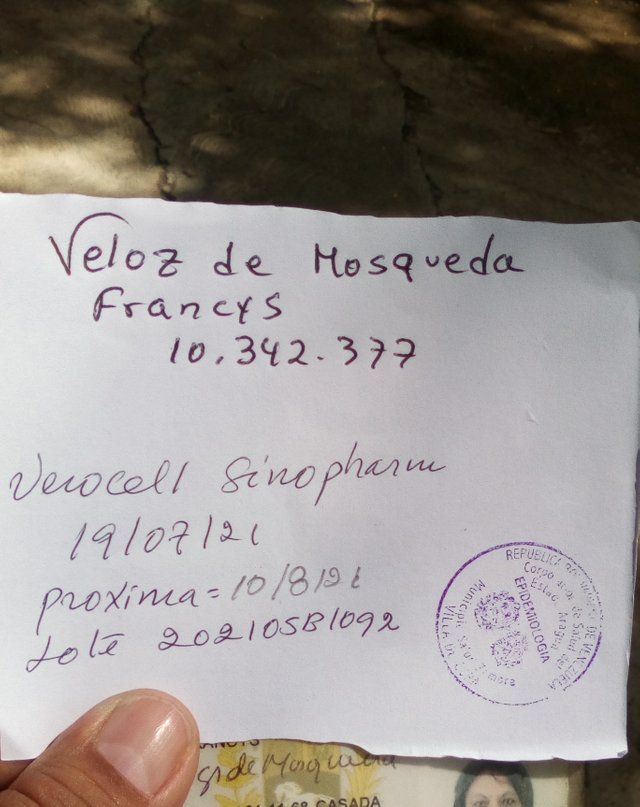 Veloz de Mosqueda
Francys
10.342.377
Verocell Sinopharm
19/07/21
proxima = 10/8/21
Lote 202105B1092
REPUBLICA DE VENEZUELA
de Salud del
Estado Aragua
EPIDEMIOLOGIA
Municipio
VILLA DE
de Mosqueda
CASADA